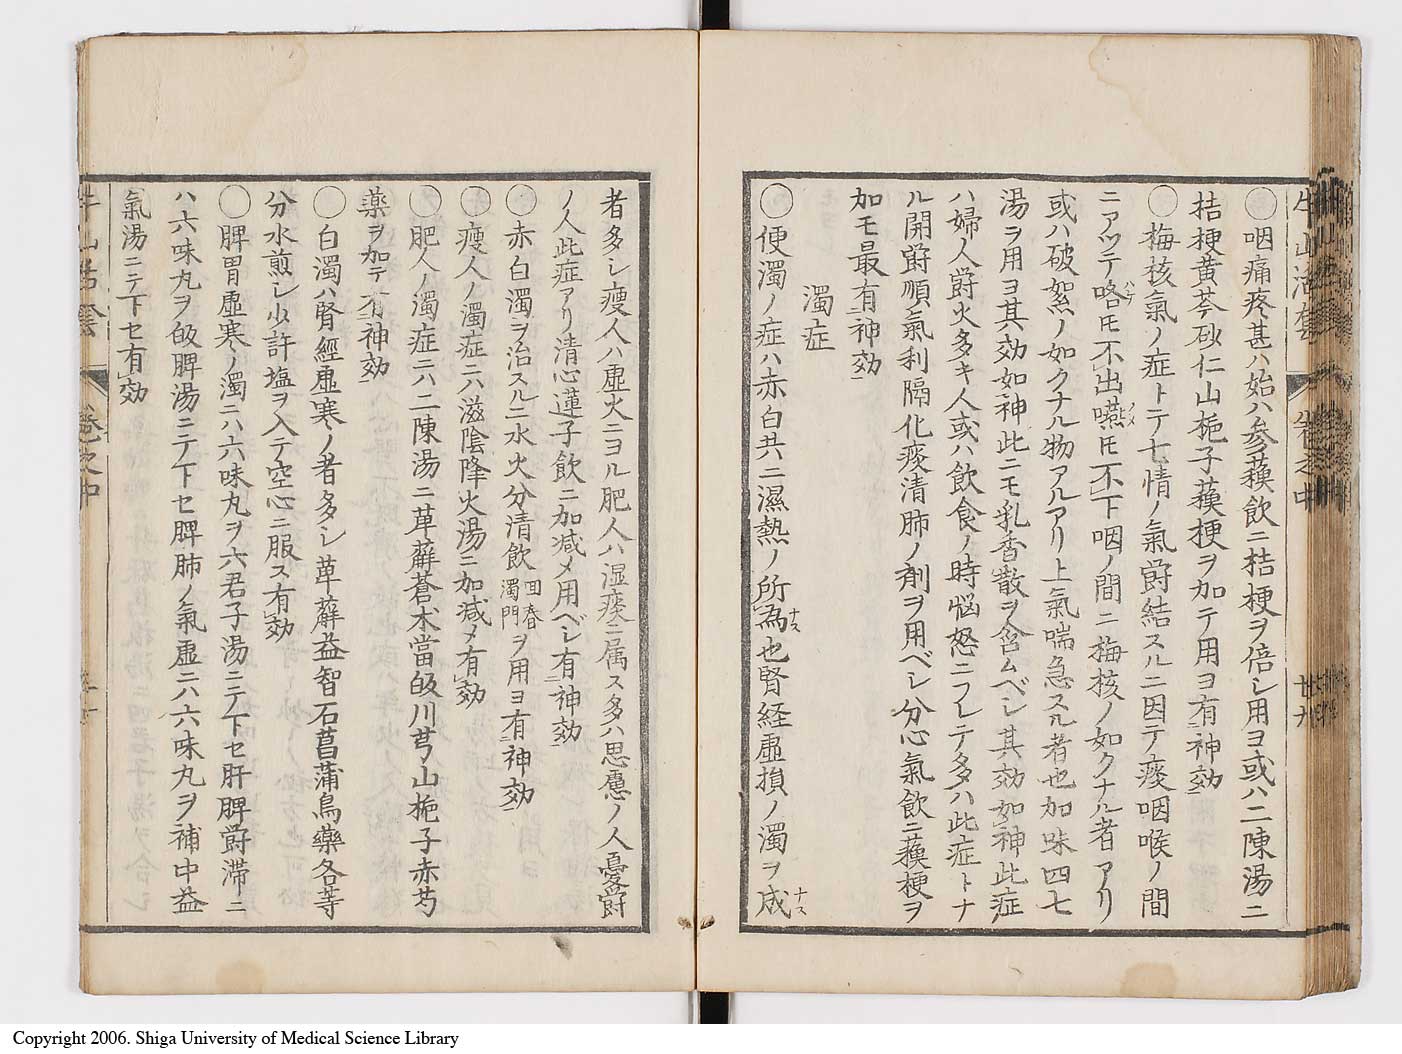 牛山活套 卷之中 廿九
〇咽痛疼甚ハ始ハ參蘓飲ニ桔梗ヲ倍シ用ヨ或ハ二陳湯ニ
桔梗黄芩砂仁山梔子蘓梗ヲ加テ用ヨ有神効
〇梅核氣ノ症トテ七情ノ氣欝結スルニ因テ痰咽喉ノ間
ニアツテ咯ハケ𪜈不出嚥ノメ𪜈不下咽ノ間ニ梅核ノ如クナル者アリ
或ハ破絮ノ如クナル物アルアリ上氣喘急スル者也加味四七
湯ヲ用ヨ其効如神此ニモ乳香散ヲ含ムベシ其効如神此症
ハ婦人欝火多キ人或ハ飲食ノ時悩怒ニフレテ多ハ此症トナ
ル開欝順氣利隔化痰清肺ノ剤ヲ用ベシ分心氣飲ニ蘓梗ヲ
加モ最有神効
濁症
〇便濁ノ症ハ赤白共ニ濕熱ノ所為ナス也腎経虚損ノ濁ヲ成ナス
者多シ瘦人ハ虚火ニヨル肥人ハ湿痰ニ属ス多ハ思慮ノ人憂欝
ノ人此症アリ清心蓮子飲ニ加减メ用ベシ有神効
〇赤白濁ヲ治スルニ水火分清飲回春濁門ヲ用ヨ有神効
〇瘦人ノ濁症ニ六滋陰降火湯ニ加减メ有効
〇肥人ノ濁症ニハ二陳湯ニ萆薢蒼朮當皈川芎山梔子赤芍
藥ヲ加テ有神効
〇白濁ハ腎經虚寒ノ者多シ萆薢益智石菖蒲烏藥各等
分水煎シ少許塩ヲ入テ空心ニ服ス有効
〇脾胃虚寒ノ濁ニハ六味丸ヲ六君子湯ニテ下セ肝脾欝滞ニ
ハ六味丸ヲ皈脾湯ニテ下セ脾肺ノ氣虚ニハ六味丸ヲ補中益
氣湯ニテ下セ有効
牛山活套 卷之中
Copyright 2006. Shiga University of Medical Science Library